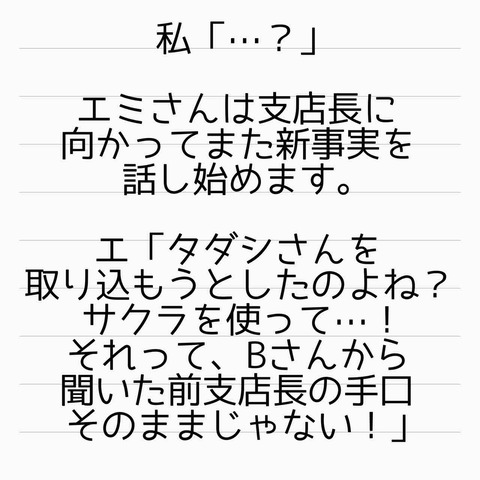 私「…？」
エミさんは支店長に
向かってまた新事実を
話し始めます。
エ「タダシさんを
取り込もうとしたのよね？
サクラを使って…！
それって、Bさんから
聞いた前支店長の手口
そのままじゃない！」